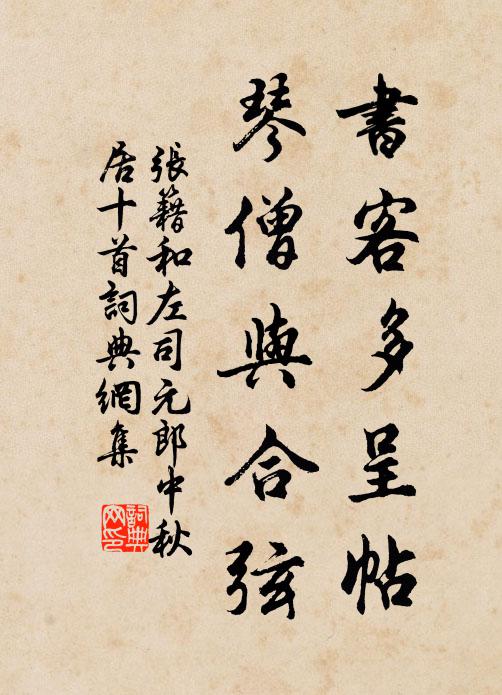 書客多呈帖
琴僧與合弦
張籍和左司元郎中秋
居十首詞典網集
詞典
网印